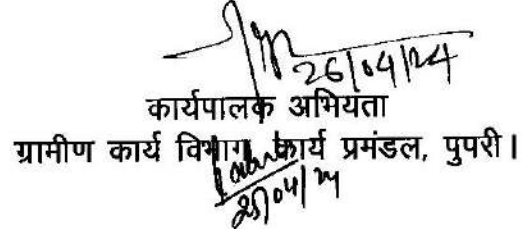 26/04/24
कार्यपालक अभियता
ग्रामीण कार्य विभाग, कार्य प्रमंडल, पुपरी।
25/04/24